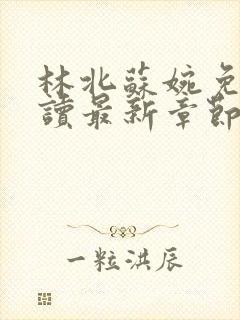 林北蘇婉免
讀最新章節
一粒洪辰